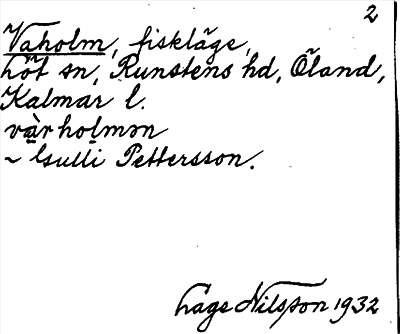 2
Vaholm, fiskläge,
Löt sn, Runstens hd, Öland,
Kalmar l.
vàrholmən
~ Gulli Pettersson.
Låge Nilsson 1932